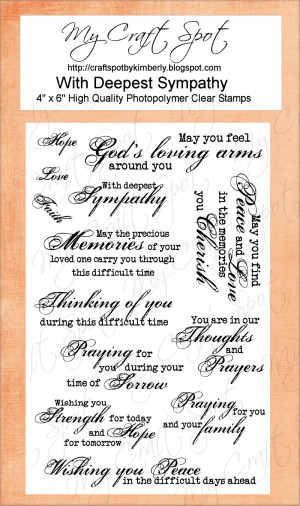 My Craft Spot
http://craftspotbykimberly.blogspot.com
With Deepest Sympathy
4" x 6" High Quality Photopolymer Clear Stamps
Hope
Love
Faith
May you feel
God's loving arms
around you
With deepest
Sympathy
May the precious
Memories of your
loved one carry you through
this difficult time
May you find
Peace and Love
in the memories
you Cherish
Thinking of you
during this difficult time
You are in our
Thoughts
and
Prayers
Praying for
you during your
time of Sorrow
Wishing you
Strength for today
and Hope
for tomorrow
Praying
for you
and your family
Wishing you Peace
in the difficult days ahead
My Craft Spot